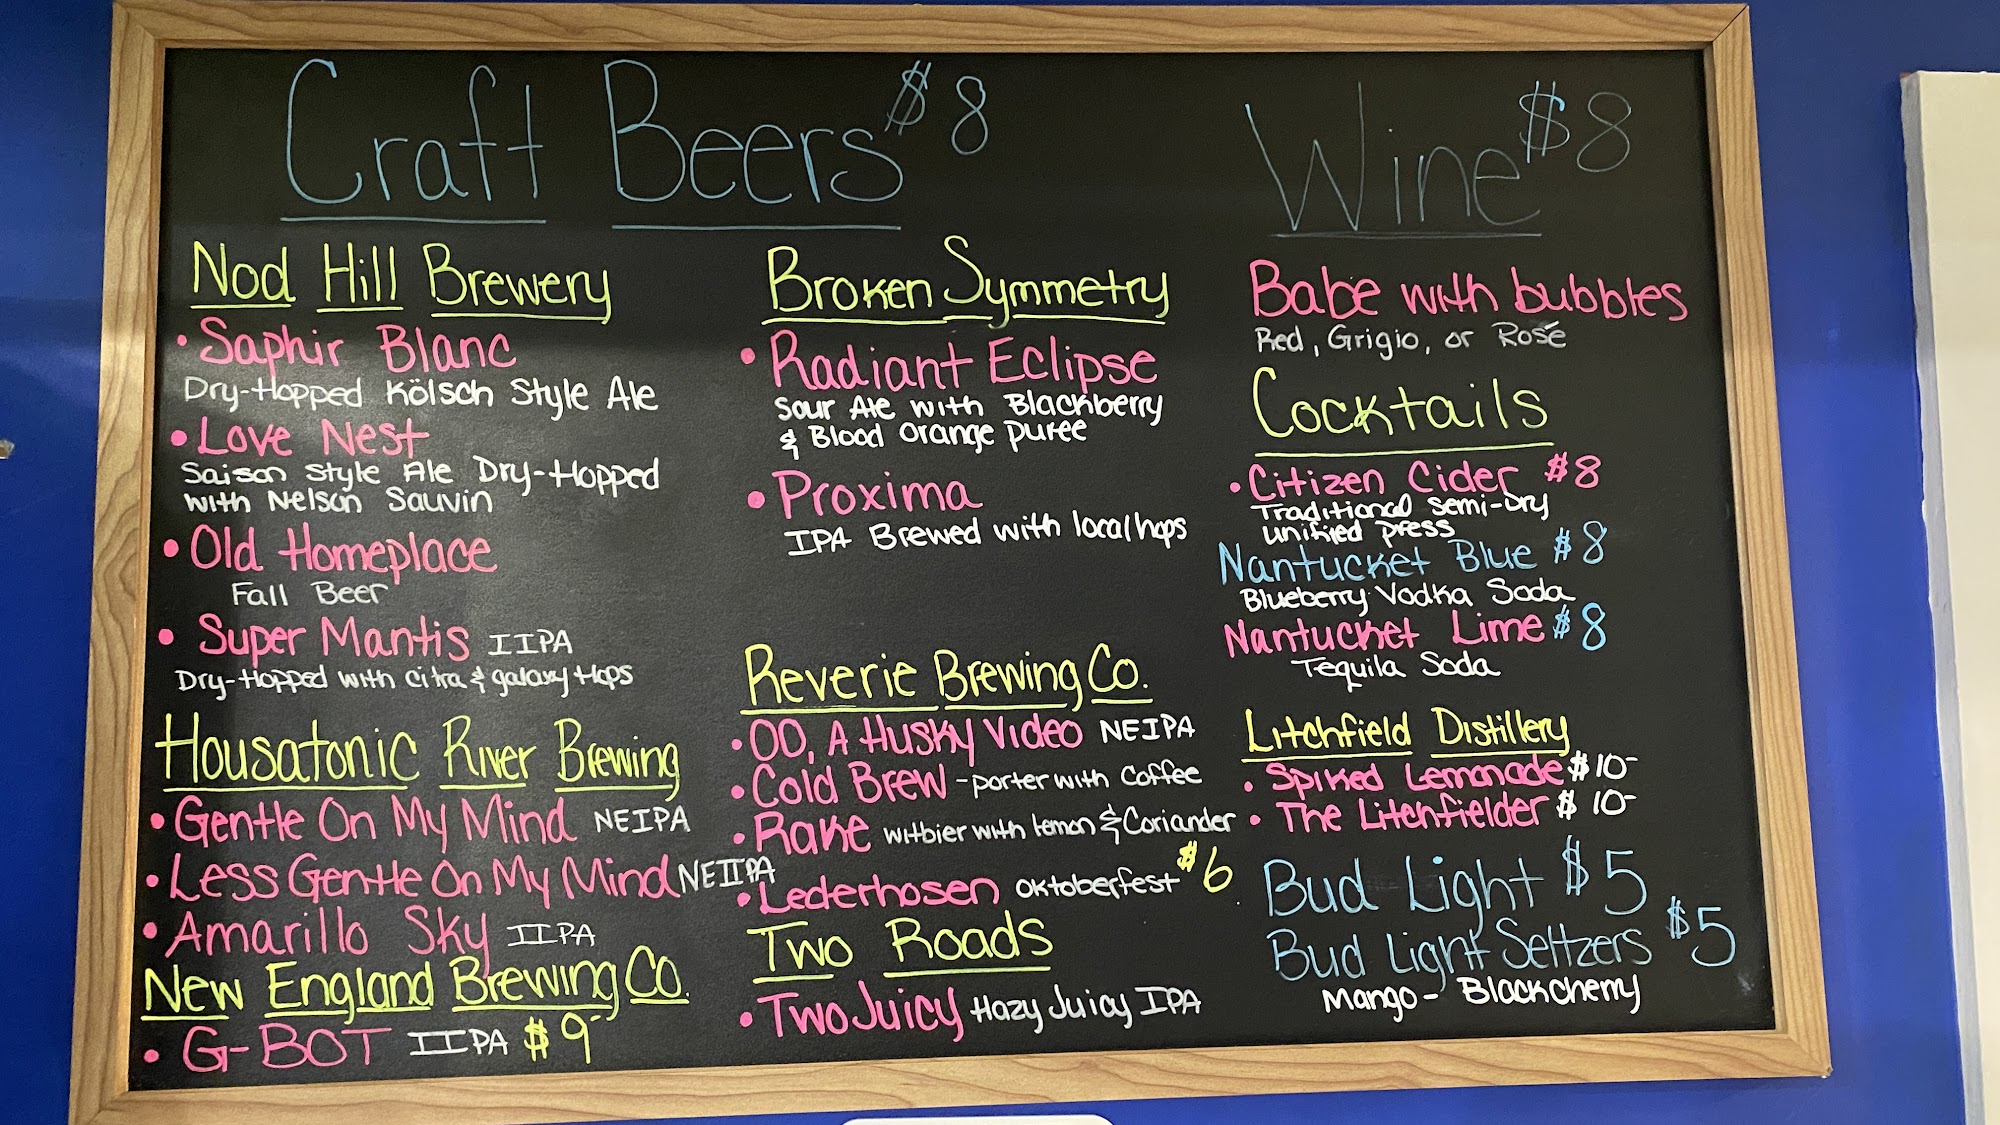 Craft Beers $8
Nod Hill Brewery
• Saphir Blanc
Dry-Hopped Kölsch Style Ale
• Love Nest
Saison Style Ale Dry-Hopped
with Nelson Sauvin
• Old Homeplace
Fall Beer
• Super Mantis IIPA
Dry-Hopped with Citra & galaxy Hops
Housatonic River Brewing
• Gentle On My Mind NEIPA
• Less Gentle On My Mind NEIIPA
• Amarillo Sky IIPA
New England Brewing Co.
• G-BOT IIPA $9
Broken Symmetry
• Radiant Eclipse
Sour Ale with Blackberry
& Blood Orange puree
• Proxima
IPA Brewed with local hops
Reverie Brewing Co.
• OO, A Husky Video NEIPA
• Cold Brew - porter with Coffee
• Rake witbier with lemon & Coriander
• Lederhosen Oktoberfest $6
Two Roads
• Two Juicy Hazy Juicy IPA
Wine $8
Babe with bubbles
Red, Grigio, or Rosé
Cocktails
• Citizen Cider $8
Traditional Semi-Dry
unified press
Nantucket Blue $8
Blueberry Vodka Soda
Nantucket Lime $8
Tequila Soda
Litchfield Distillery
• Spiked Lemonade $10-
• The Litchfielder $10-
Bud Light $5
Bud Light Seltzers $5
Mango - Blackcherry